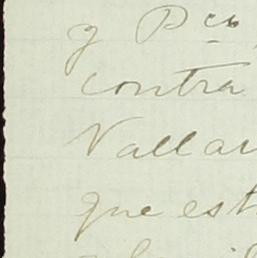 y Pco
contra
Vallar
que est